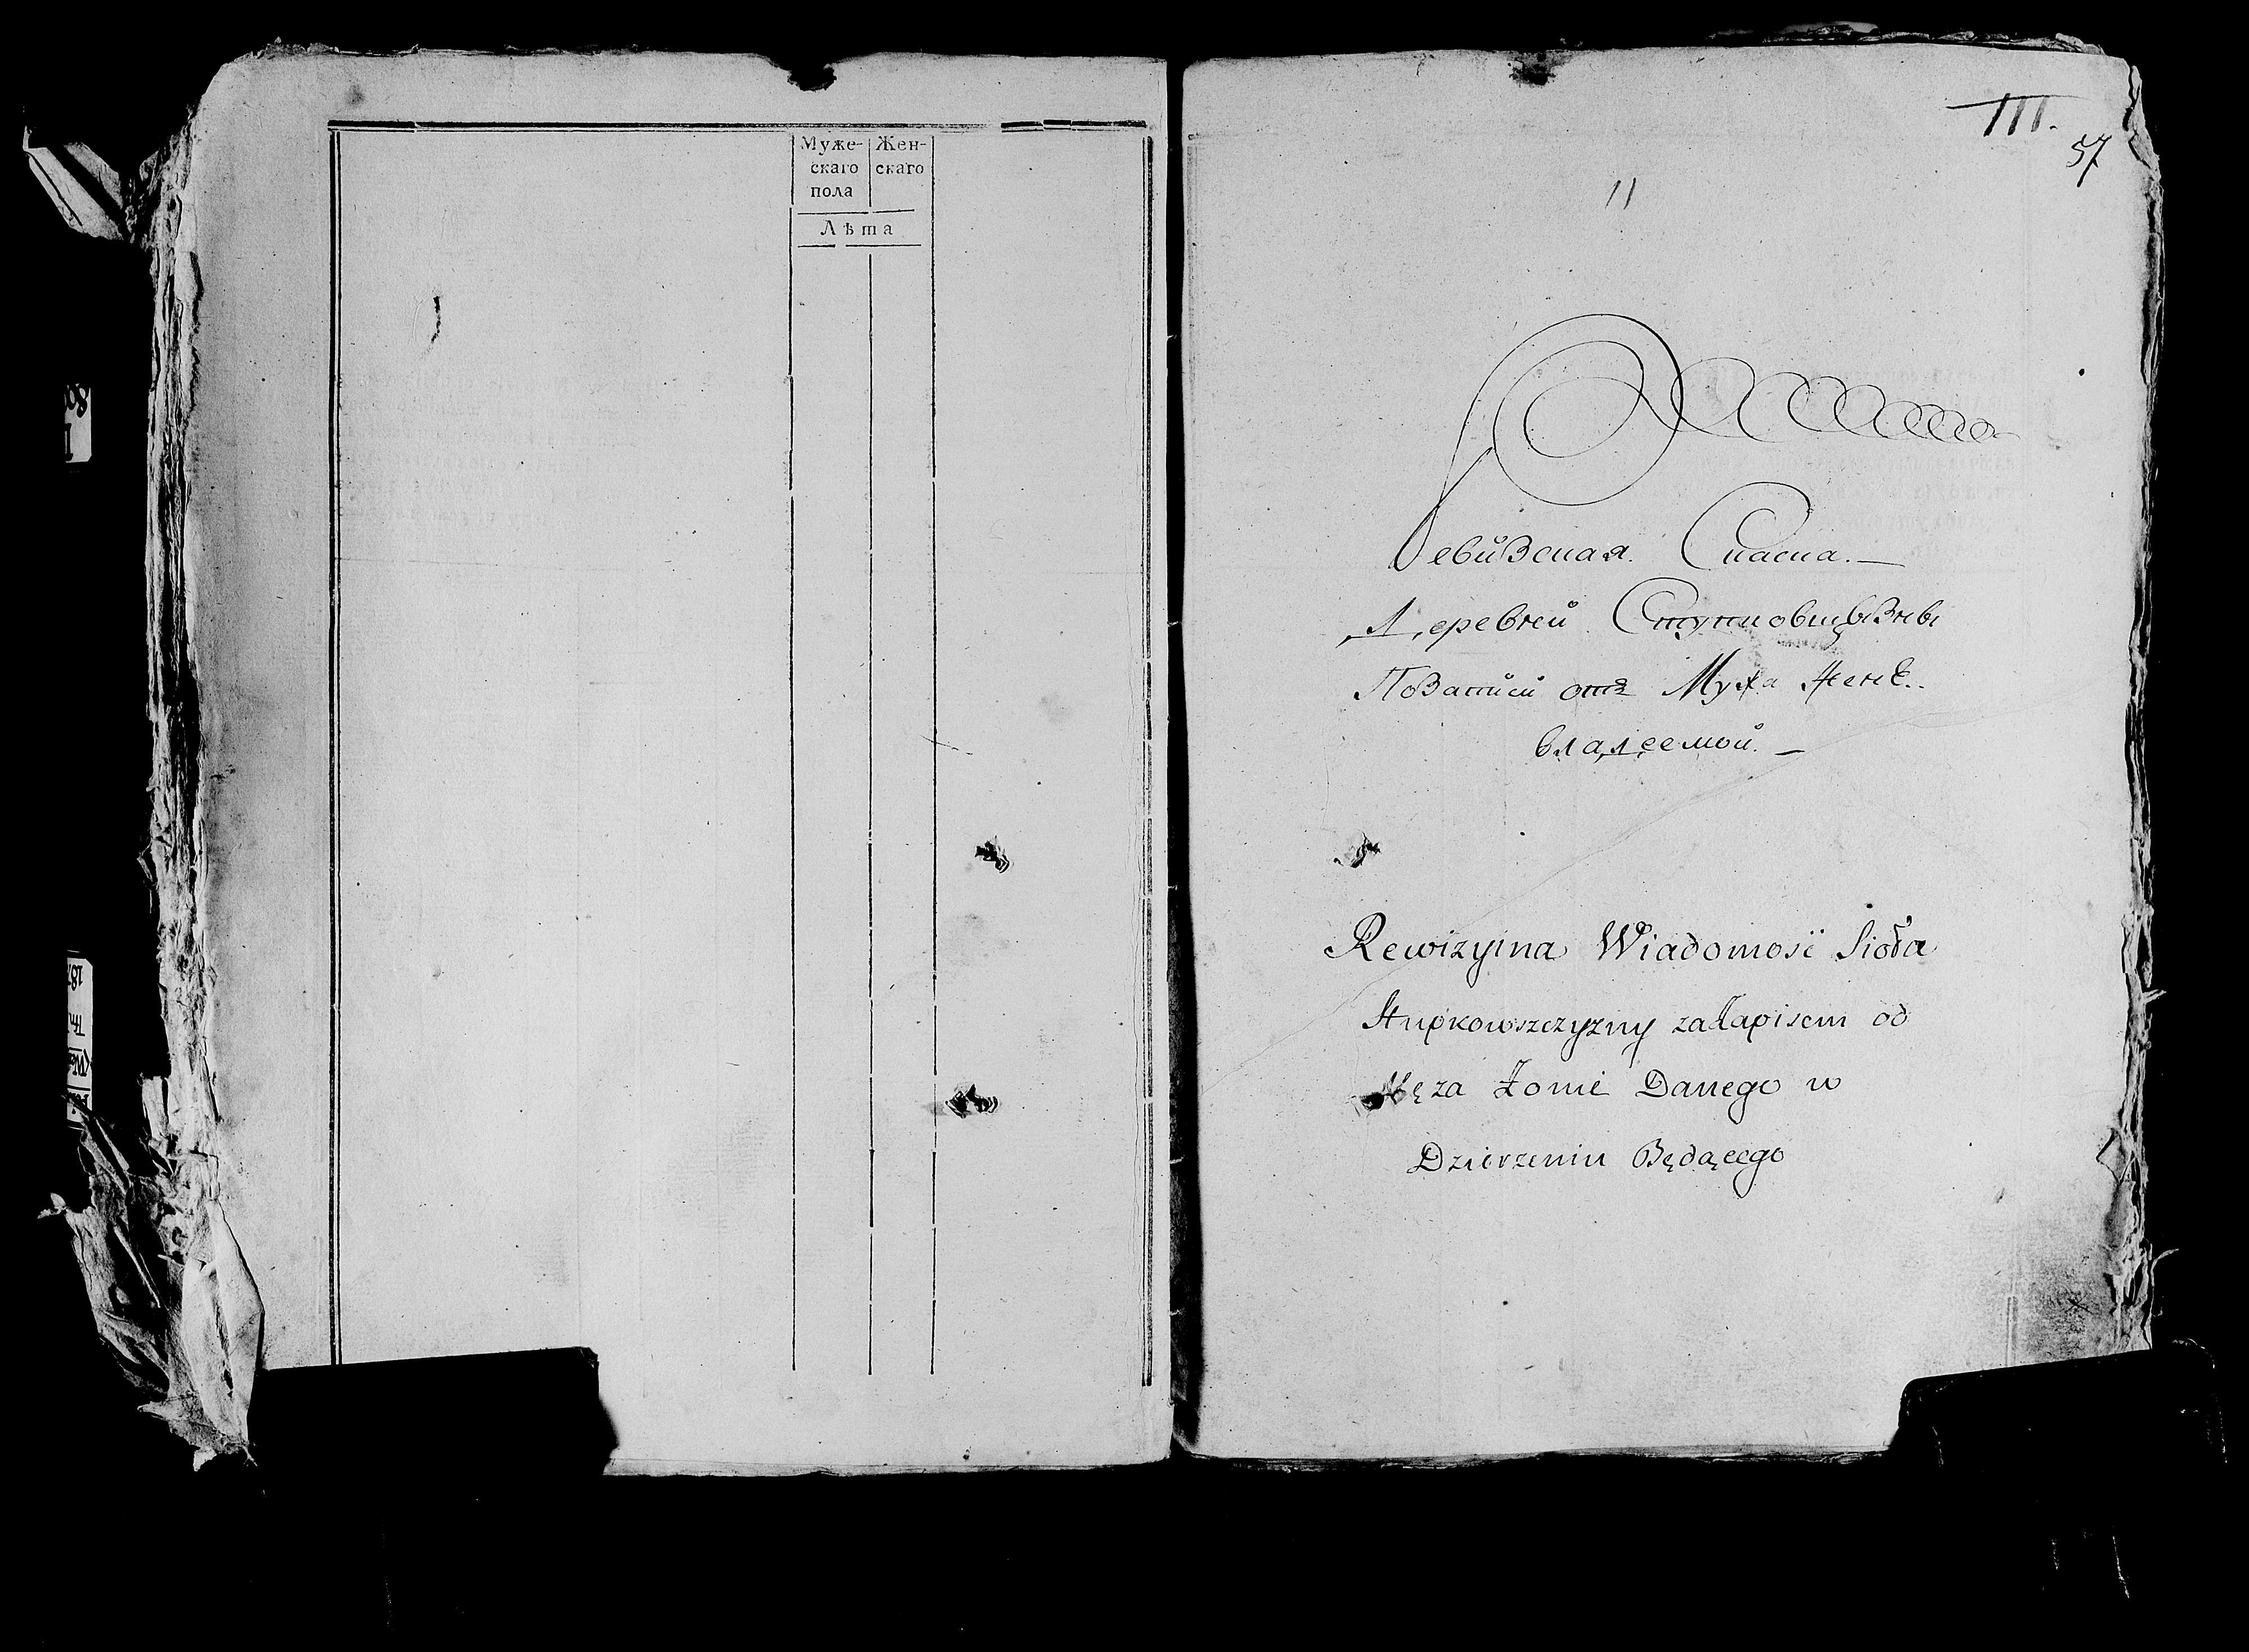 Муже- Жен-
скаго скаго
пола
Лѣта
III.
57
11
Ревизская Скаска. —
Деревни Ступковщызны
Позаписи отъ Мужа Женѣ
владеемой. —
Rewizyina Wiadomość Sioła
Stupkowszczyzny zaZapisem od
Męża Żonie Danego w
Dzierżeniu Będącego